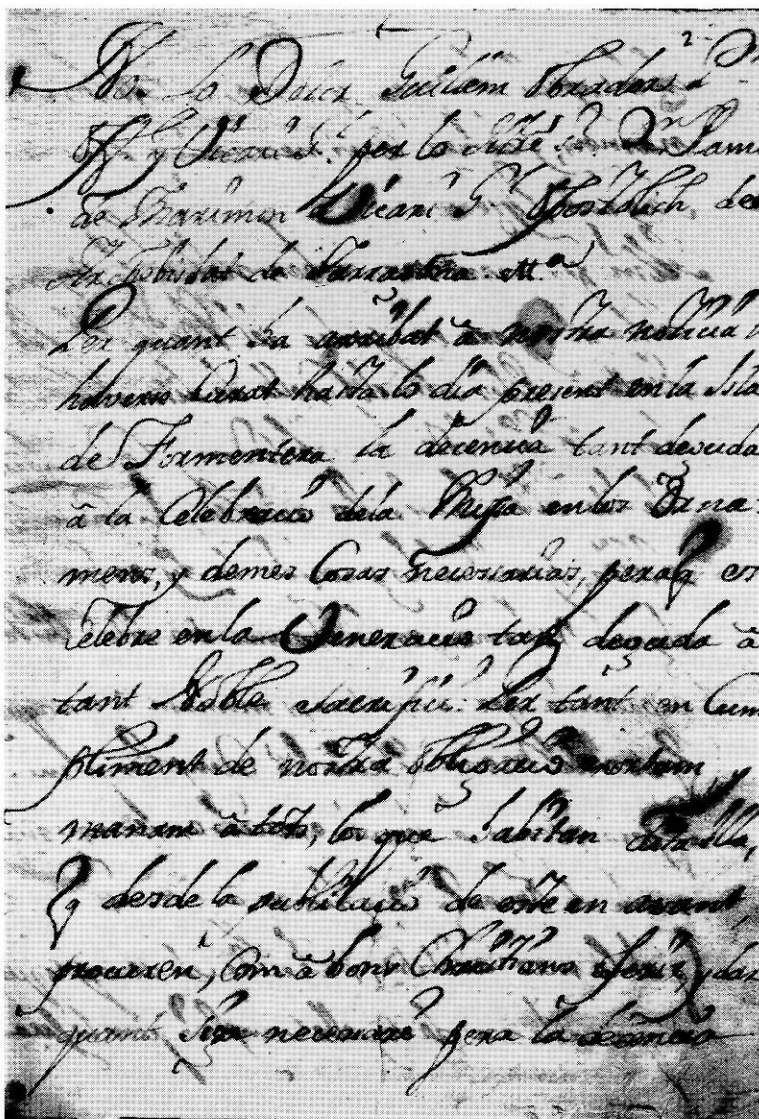 Nos Lo Dotor Guillem Obradors P
Offl. y Vicari Gl. per lo Illre. Sr. Dn.
de Marimon Vicari Gl. Apostolich de
Archebisbat de Tarragona &a.
Per quant ha arribat à nostra noticia
haverse durat hasta lo dia present en la Isla
de Formentera la decencia tant deguda
à la Celebracio dela Missa en los Orna-
mens, y demes Cosas necessarias, peraq es
Celebre en la Veneracio tant deguda à
tant Noble Sacrifici. Per tant en Cum
pliment de nostra obligacio exortam
manam à tots, los que habitan dita Illa,
q desde la publicacio de este en avant
procuren, Com à bons Christians oferir, y dar
quant sera necessari pera la decencia